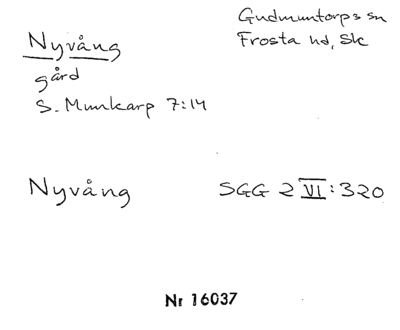 Nyvång
Gudmuntorps sn
Frosta hd, Sk
gård
S. Munkarp 7:14
Nyvång SGG 2 VI:320
Nr 16037